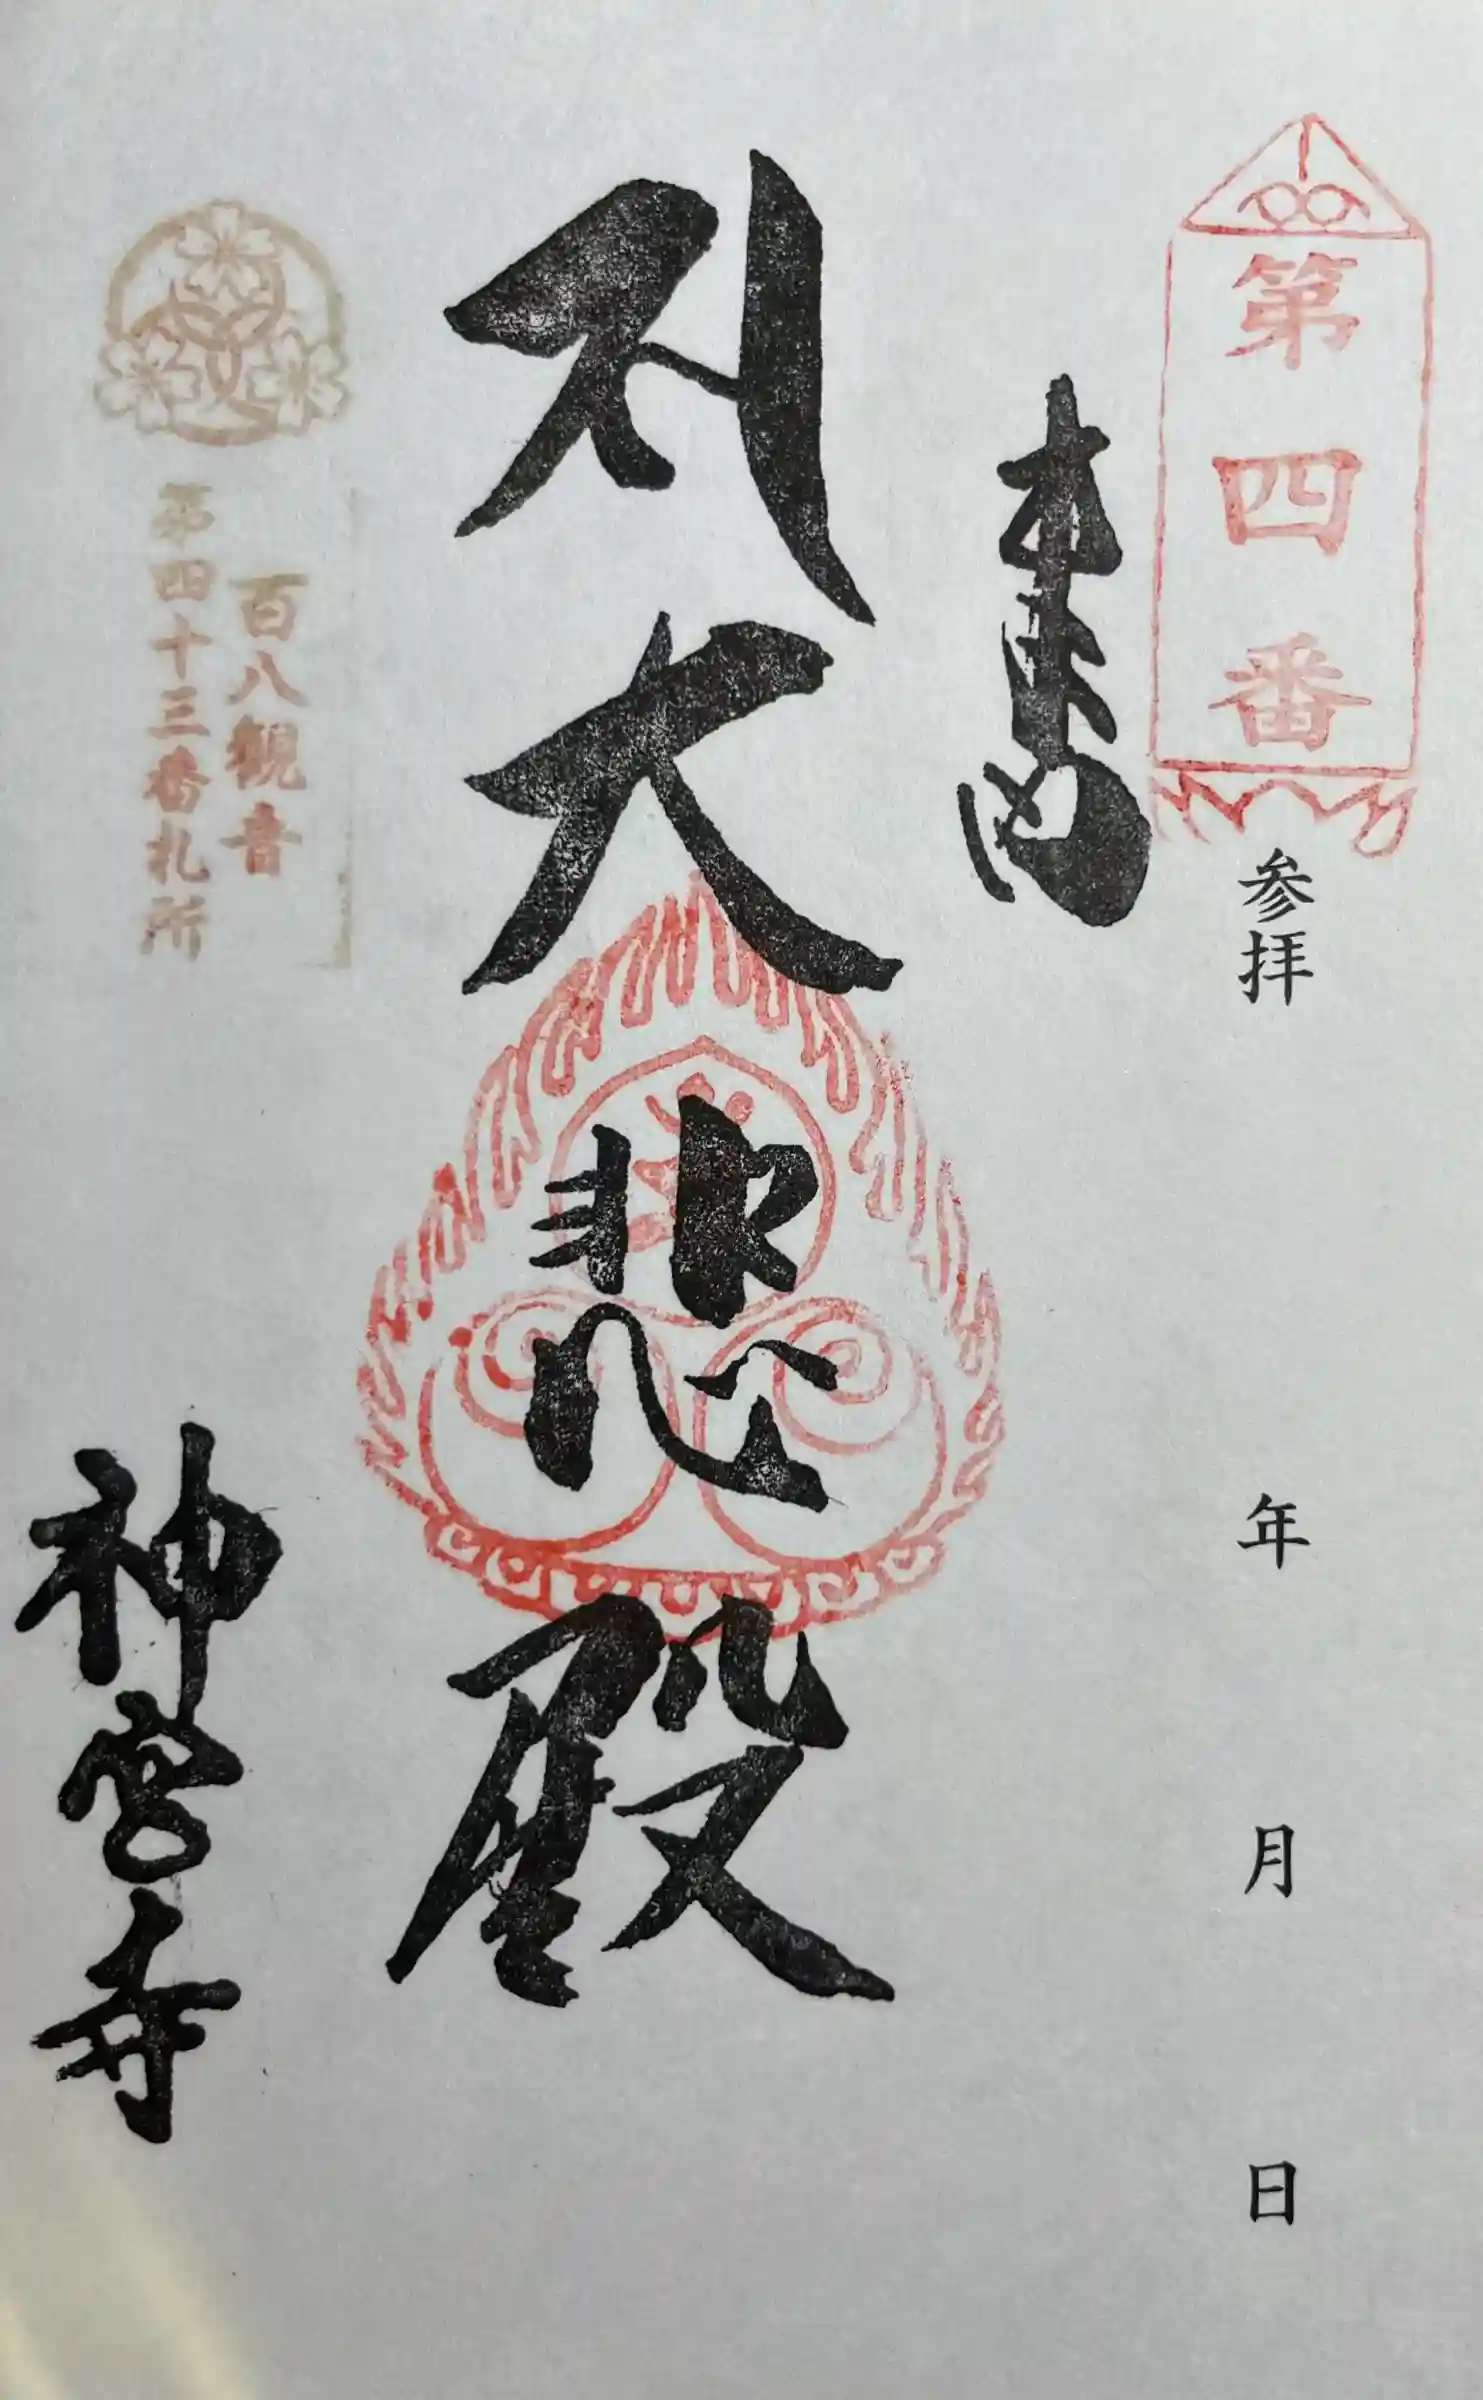 第四番
奉拝
参拝　年　月　日
大悲殿
百八観音
第四十三番札所
神宮寺